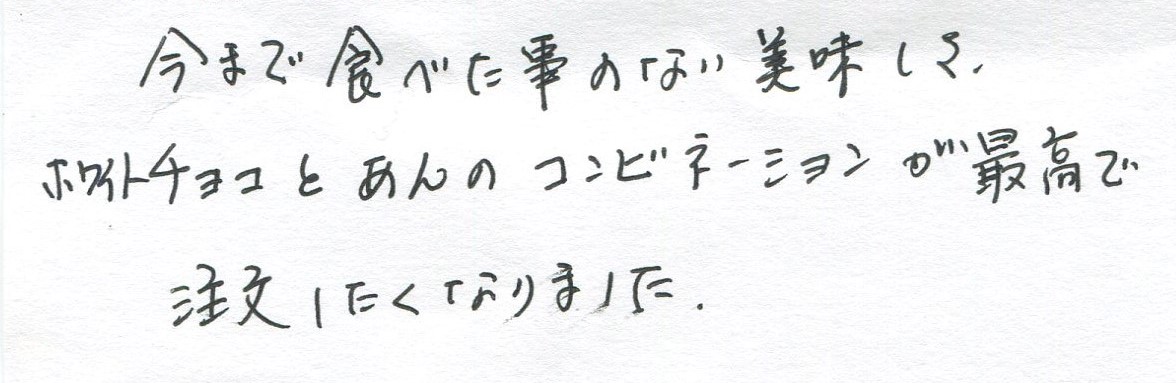 今まで食べた事のない美味しさ.
ホワイトチョコとあんのコンビネーションが最高で
注文したくなりました.